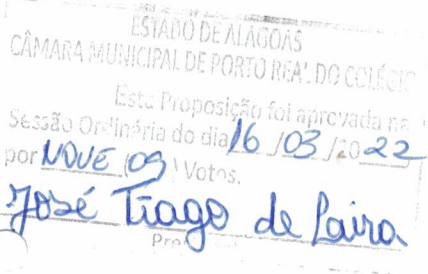 ESTADO DE ALAGOAS
CÂMARA MUNICIPAL DE PORTO REAL DO COLÉGIO
Esta Proposição foi aprovada na
Sessão Ordinária do dia 16/03/2022
por NOVE (09) Votos.
José Tiago de Laira